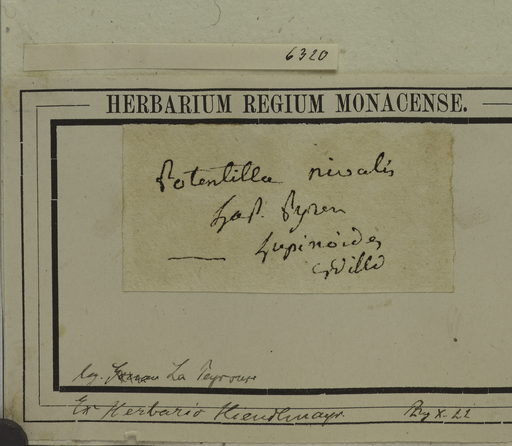 6320
HERBARIUM REGIUM MONACENSE.
Potentilla nivalis
LaP. Pyren
Lupinoides
Willd
leg. La Peyrouse
Ex Herbario Hiendlmayr.